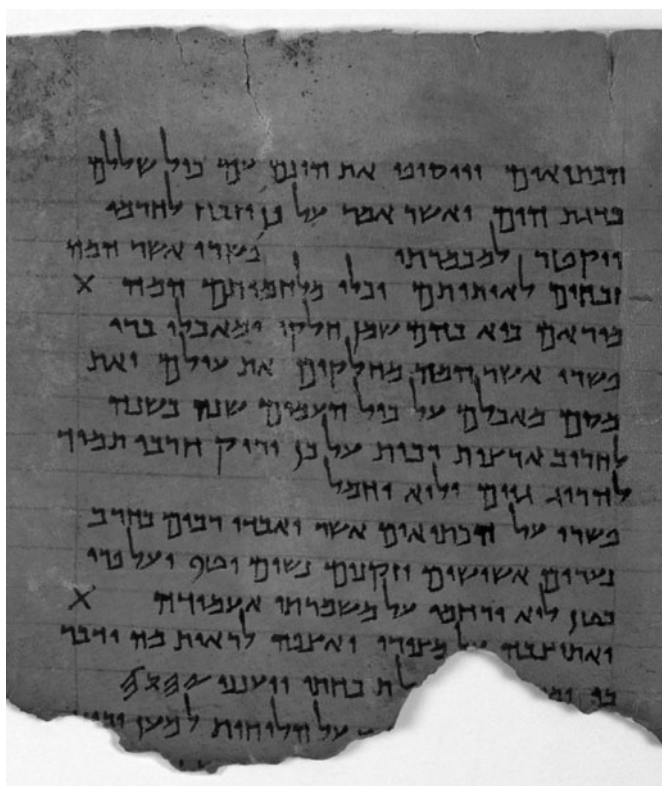 הכתיאים ויוסיפו את הונם עם כול שללם
כדגת הים ואשר אמר על כן יזבח לחרמו
ויקטר למכמרתו פשרו אשר המה
זבחים לאותותם וכלי מלחמותם המה X
מוראם כיא בהם שמן חלקו ומאכלו ברי
פשרו אשר המה מחלקים את עולם ואת
מסם מאכלם על כול העמים שנה בשנה
לחריב ארצות רבות על כן יריק חרבו תמיד
להרוג גוים ולוא יחמל
פשרו על הכתיאים אשר יאבדו רבים בחרב
נערים אשישים וזקנים נשים וטף ועל פרי
בטן לוא ירחמו על משמרתי אעמודה X
ואתיצבה על מצורי ואצפה לראות מה ידבר
בי ויענני 𐤉𐤄𐤅𐤄
על הלוחות למען